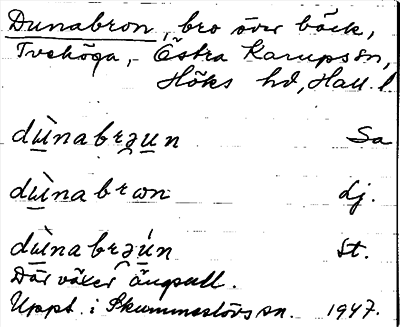 Dunabron, bro över bäck,
Tvehöga, Östra Karups sn,
Höks hd, Hall. l
dùnabrəun Sa
dùnabrωn dj.
dùnabrəún St.
Där växer ängsull.
Uppt. i Skummeslövs sn. 1947.